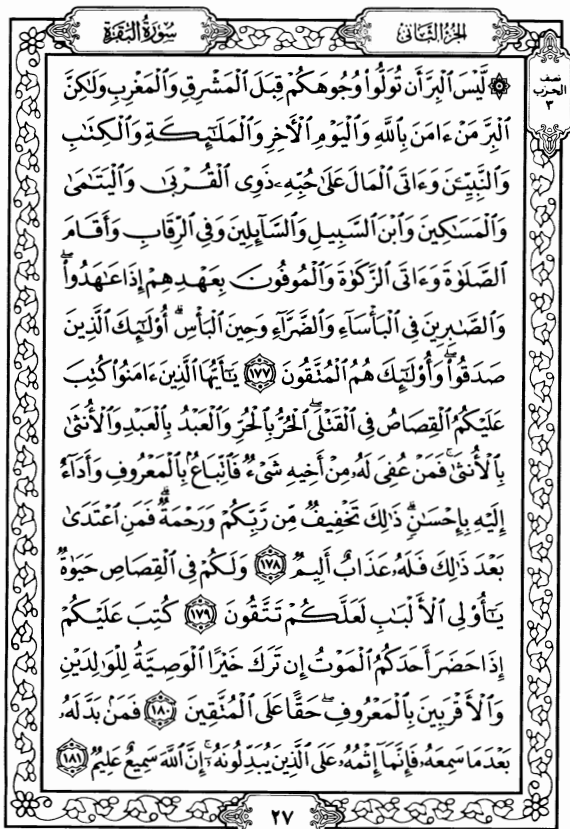 سُورَةُ البَقَرَةِ
الجُزْءُ الثَّانِي
نصف
الحزب
٣
۞ لَّيْسَ ٱلْبِرَّ أَن تُوَلُّوا۟ وُجُوهَكُمْ قِبَلَ ٱلْمَشْرِقِ وَٱلْمَغْرِبِ وَلَٰكِنَّ
ٱلْبِرَّ مَنْ ءَامَنَ بِٱللَّهِ وَٱلْيَوْمِ ٱلْأَخِرِ وَٱلْمَلَٰٓئِكَةِ وَٱلْكِتَٰبِ
وَٱلنَّبِيِّـۧنَ وَءَاتَى ٱلْمَالَ عَلَىٰ حُبِّهِۦ ذَوِى ٱلْقُرْبَىٰ وَٱلْيَتَٰمَىٰ
وَٱلْمَسَٰكِينَ وَٱبْنَ ٱلسَّبِيلِ وَٱلسَّآئِلِينَ وَفِى ٱلرِّقَابِ وَأَقَامَ
ٱلصَّلَوٰةَ وَءَاتَى ٱلزَّكَوٰةَ وَٱلْمُوفُونَ بِعَهْدِهِمْ إِذَا عَٰهَدُوا۟ ۖ
وَٱلصَّٰبِرِينَ فِى ٱلْبَأْسَآءِ وَٱلضَّرَّآءِ وَحِينَ ٱلْبَأْسِ ۗ أُو۟لَٰٓئِكَ ٱلَّذِينَ
صَدَقُوا۟ ۖ وَأُو۟لَٰٓئِكَ هُمُ ٱلْمُتَّقُونَ ١٧٧ يَٰٓأَيُّهَا ٱلَّذِينَ ءَامَنُوا۟ كُتِبَ
عَلَيْكُمُ ٱلْقِصَاصُ فِى ٱلْقَتْلَى ۖ ٱلْحُرُّ بِٱلْحُرِّ وَٱلْعَبْدُ بِٱلْعَبْدِ وَٱلْأُنثَىٰ
بِٱلْأُنثَىٰ ۚ فَمَنْ عُفِىَ لَهُۥ مِنْ أَخِيهِ شَىْءٌ فَٱتِّبَاعٌۢ بِٱلْمَعْرُوفِ وَأَدَآءٌ
إِلَيْهِ بِإِحْسَٰنٍ ۗ ذَٰلِكَ تَخْفِيفٌ مِّن رَّبِّكُمْ وَرَحْمَةٌ ۗ فَمَنِ ٱعْتَدَىٰ
بَعْدَ ذَٰلِكَ فَلَهُۥ عَذَابٌ أَلِيمٌ ١٧٨ وَلَكُمْ فِى ٱلْقِصَاصِ حَيَوٰةٌ
يَٰٓأُو۟لِى ٱلْأَلْبَٰبِ لَعَلَّكُمْ تَتَّقُونَ ١٧٩ كُتِبَ عَلَيْكُمْ
إِذَا حَضَرَ أَحَدَكُمُ ٱلْمَوْتُ إِن تَرَكَ خَيْرًا ٱلْوَصِيَّةُ لِلْوَٰلِدَيْنِ
وَٱلْأَقْرَبِينَ بِٱلْمَعْرُوفِ ۖ حَقًّا عَلَى ٱلْمُتَّقِينَ ١٨٠ فَمَنۢ بَدَّلَهُۥ
بَعْدَ مَا سَمِعَهُۥ فَإِنَّمَآ إِثْمُهُۥ عَلَى ٱلَّذِينَ يُبَدِّلُونَهُۥٓ ۚ إِنَّ ٱللَّهَ سَمِيعٌ عَلِيمٌ ١٨١
٢٧